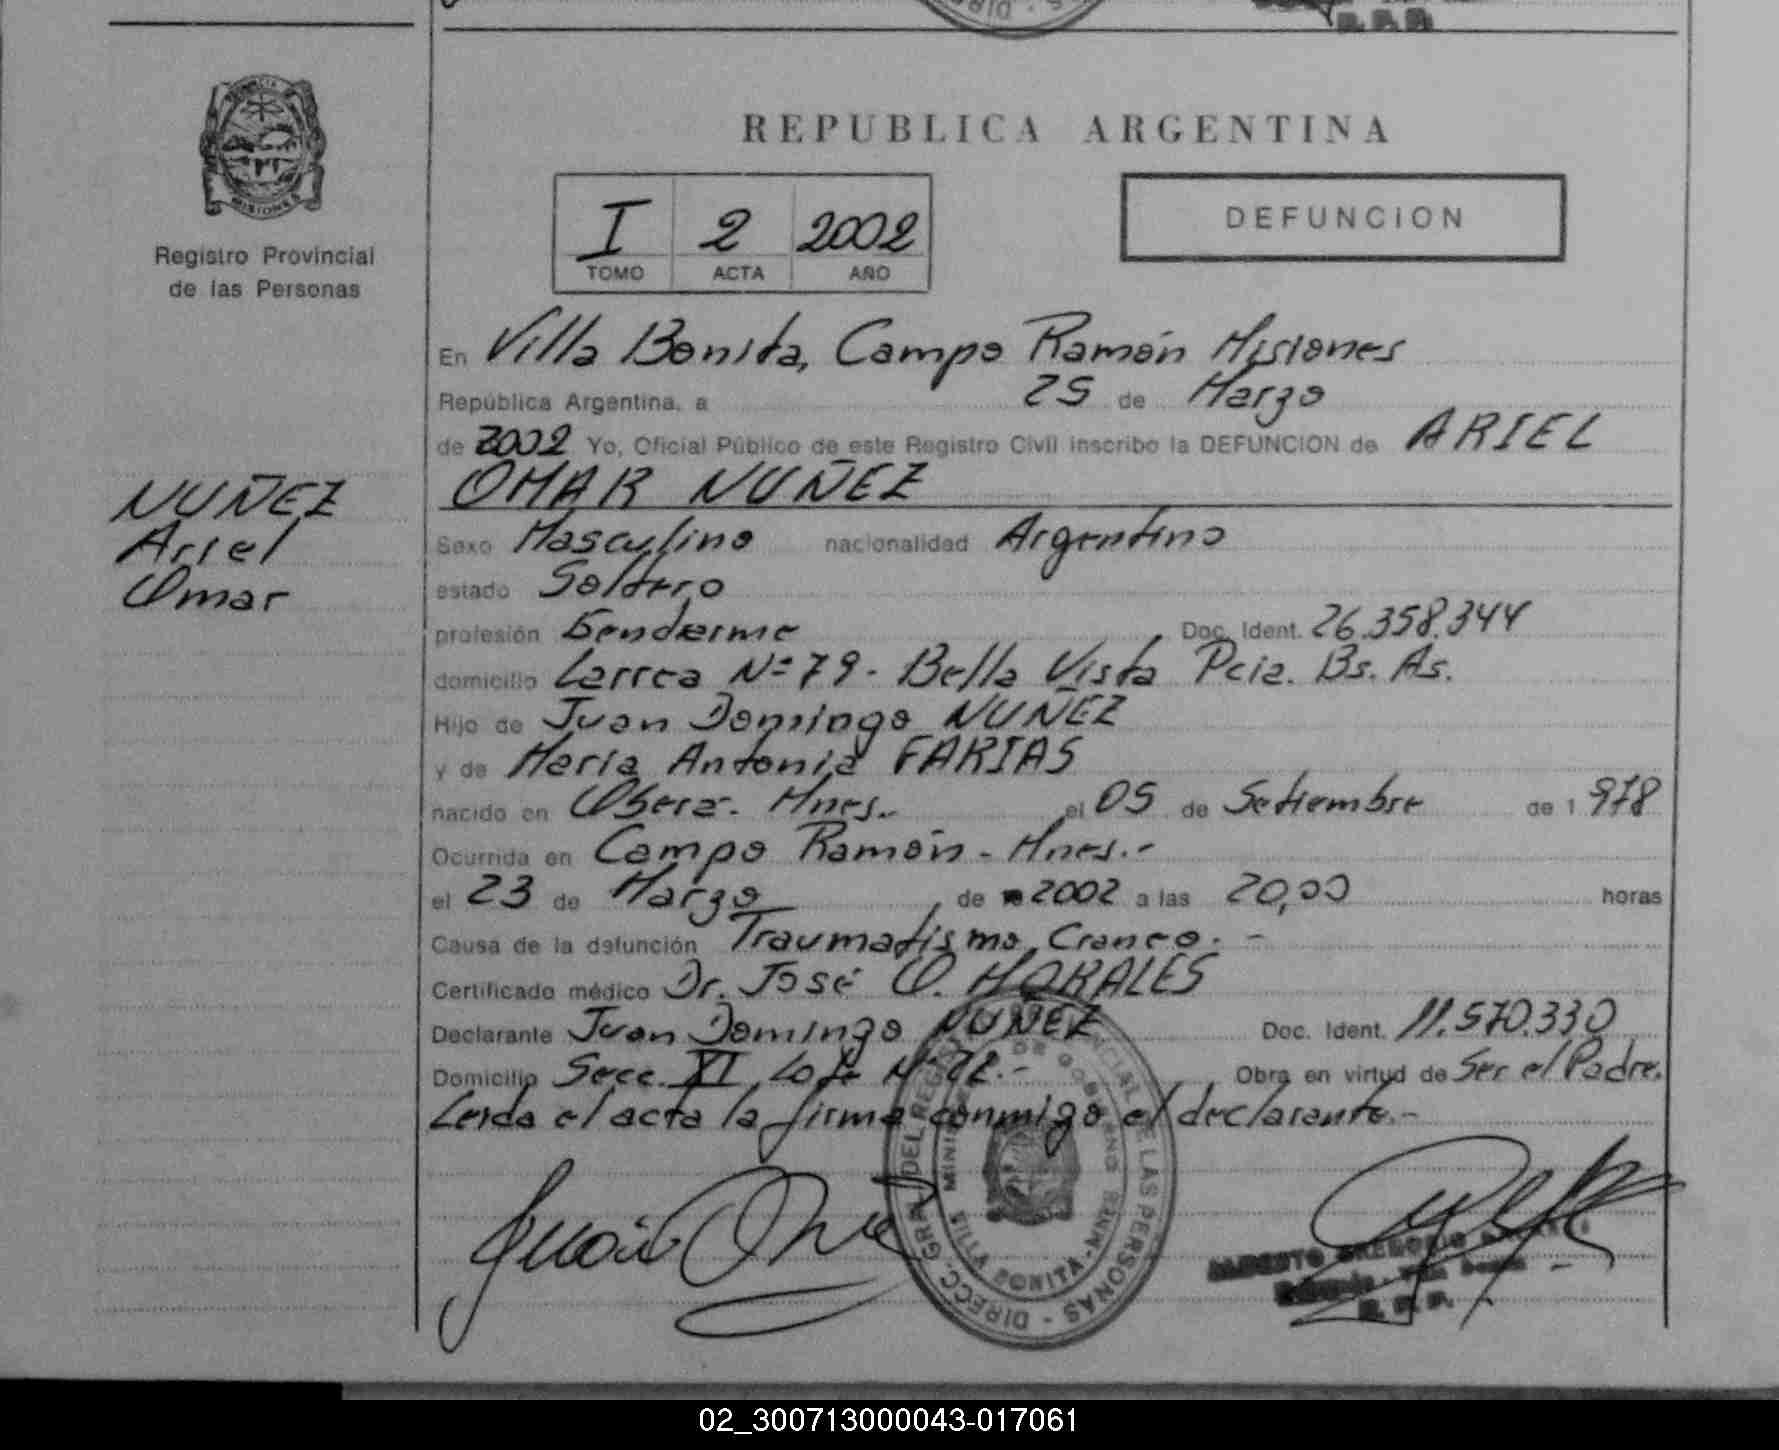 REPUBLICA ARGENTINA
MISIONES
Registro Provincial
de las Personas
I 2 2002
TOMO ACTA AÑO
DEFUNCION
En Villa Bonita, Campo Ramón Misiones
República Argentina, a 25 de Marzo
de 2002 Yo, Oficial Público de este Registro Civil inscribo la DEFUNCION de ARIEL
OMAR NUÑEZ
NUÑEZ
Ariel
Omar
Sexo Masculino nacionalidad Argentino
estado Soltero
profesión Gendarme Doc. Ident. 26.358.344
domicilio Larrea Nº 79 - Bella Vista Pcia. Bs. As.
Hijo de Juan Domingo NUÑEZ
y de María Antonia FARIAS
nacido en Oberá - Mnes.- el 05 de Setiembre de 1 978
Ocurrida en Campo Ramón - Mnes.-
el 23 de Marzo de 2002 a las 20,00 horas
Causa de la defunción Traumatismo Craneo. -
Certificado médico Dr. José O. MORALES
Declarante Juan Domingo NUÑEZ Doc. Ident. 11.570.330
Domicilio Secc. XI Lote Nº Obra en virtud de Ser el Padre.
Leida el acta la firma conmigo el declarante.-
DIRECC. GRAL. DEL REGISTRO PROVINCIAL DE LAS PERSONAS
VILLA BONITA - MNES
R. P. P.
02_300713000043-017061